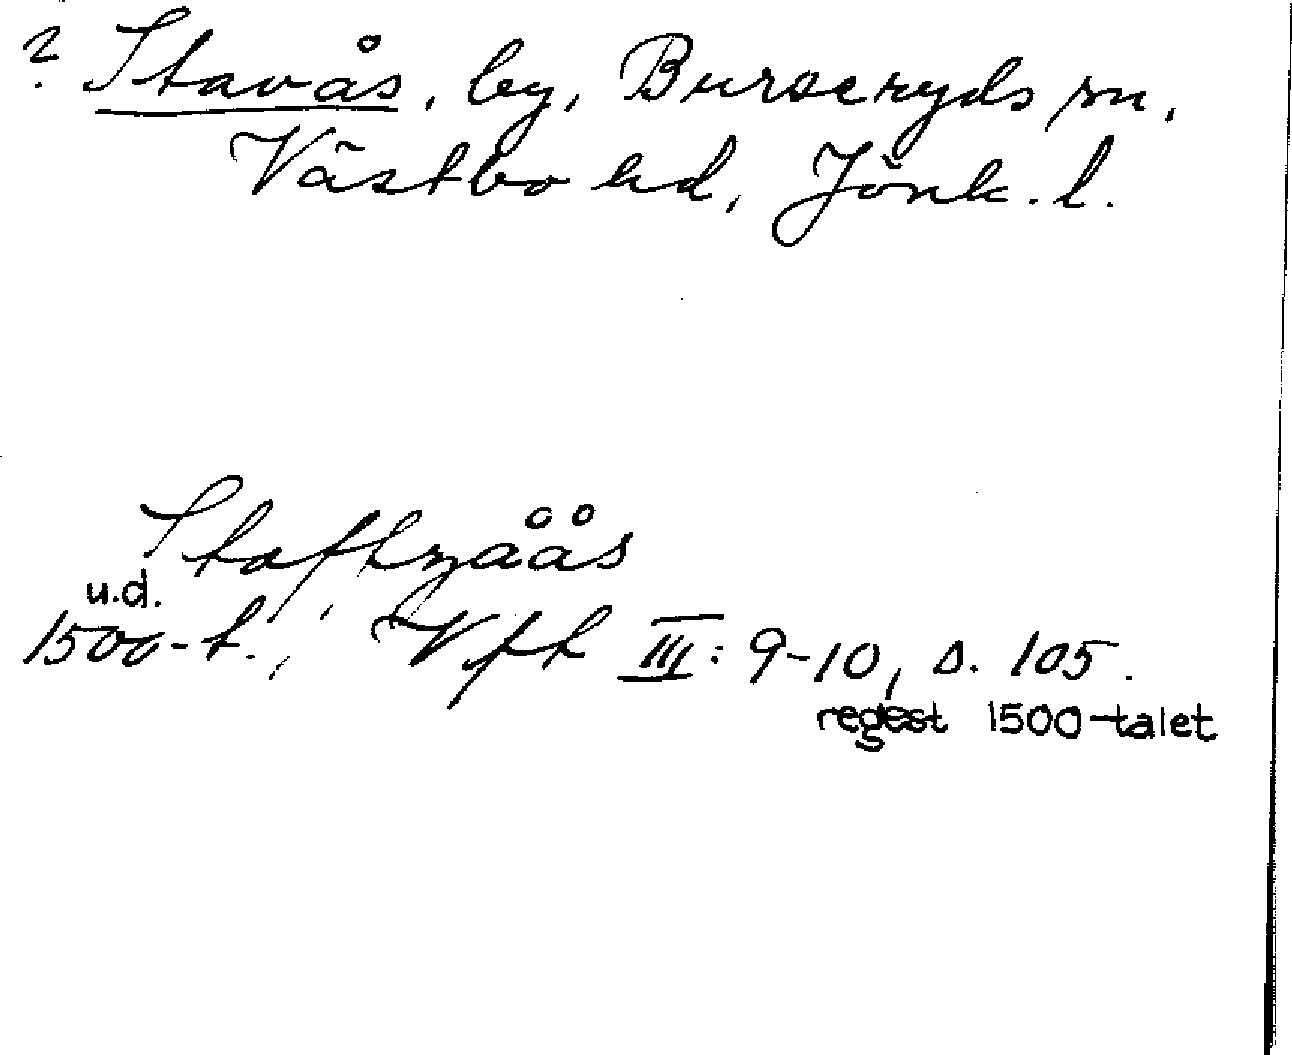 ? Stavås, by, Burseryds sn,
Västbo hd, Jönk. l.
Staftzåås
u.d.
1500-t., Vfh III: 9-10, s. 105.
regest 1500-talet